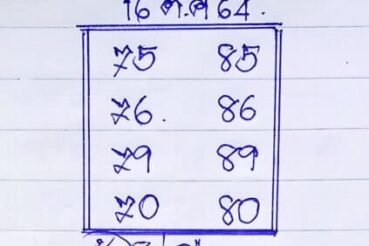 16 ต.ค 64.
75 85
76. 86
79 89
70 80